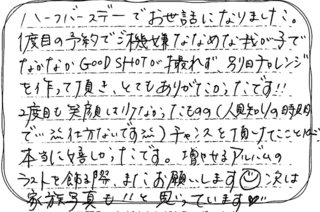 ハーフバースデーでお世話になりました。
1度目の予約でご機嫌ななめな我が子で
なかなかGOOD SHOTが撮れず、別日チャレンジ
を作って頂き、とてもありがたかったです!!
2度目も笑顔は少なかったものの(人見知りの時期
で…仕方ないです)チャンスを頂けたこと
本当に嬉しかったです。増やせるアルバムの
ラストを飾る際、またお願いします☺次は
家族写真も!!と思っています♡